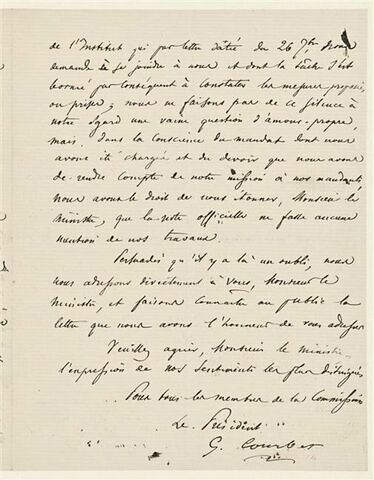 de l'Institut qui par lettre datée du 26 7bre nous
demande à se joindre à nous et dont la tâche s'est
bornée par conséquent à constater les mesures
ou prises ; nous ne faisons pas de ce silence à
notre égard une vaine question d'amour-propre,
mais dans la conscience du mandat dont nous
avons été chargé et du devoir que nous avons
de rendre compte de notre mission à nos mandants,
nous avons le droit de nous étonner, Monsieur le
ministre, que la note officielle ne fasse aucune
mention de nos travaux.
Persuadés qu'il y a là un oubli, nous
nous adressons directement à Vous, Monsieur le
Ministre, et faisons connaître au public la
lettre que nous avons l'honneur de vous adresser
Veuillez agréer, Monsieur le ministre
l'expression de nos sentiments les plus distingués
Pour tous les membres de la Commission
Le Président
G. Courbet